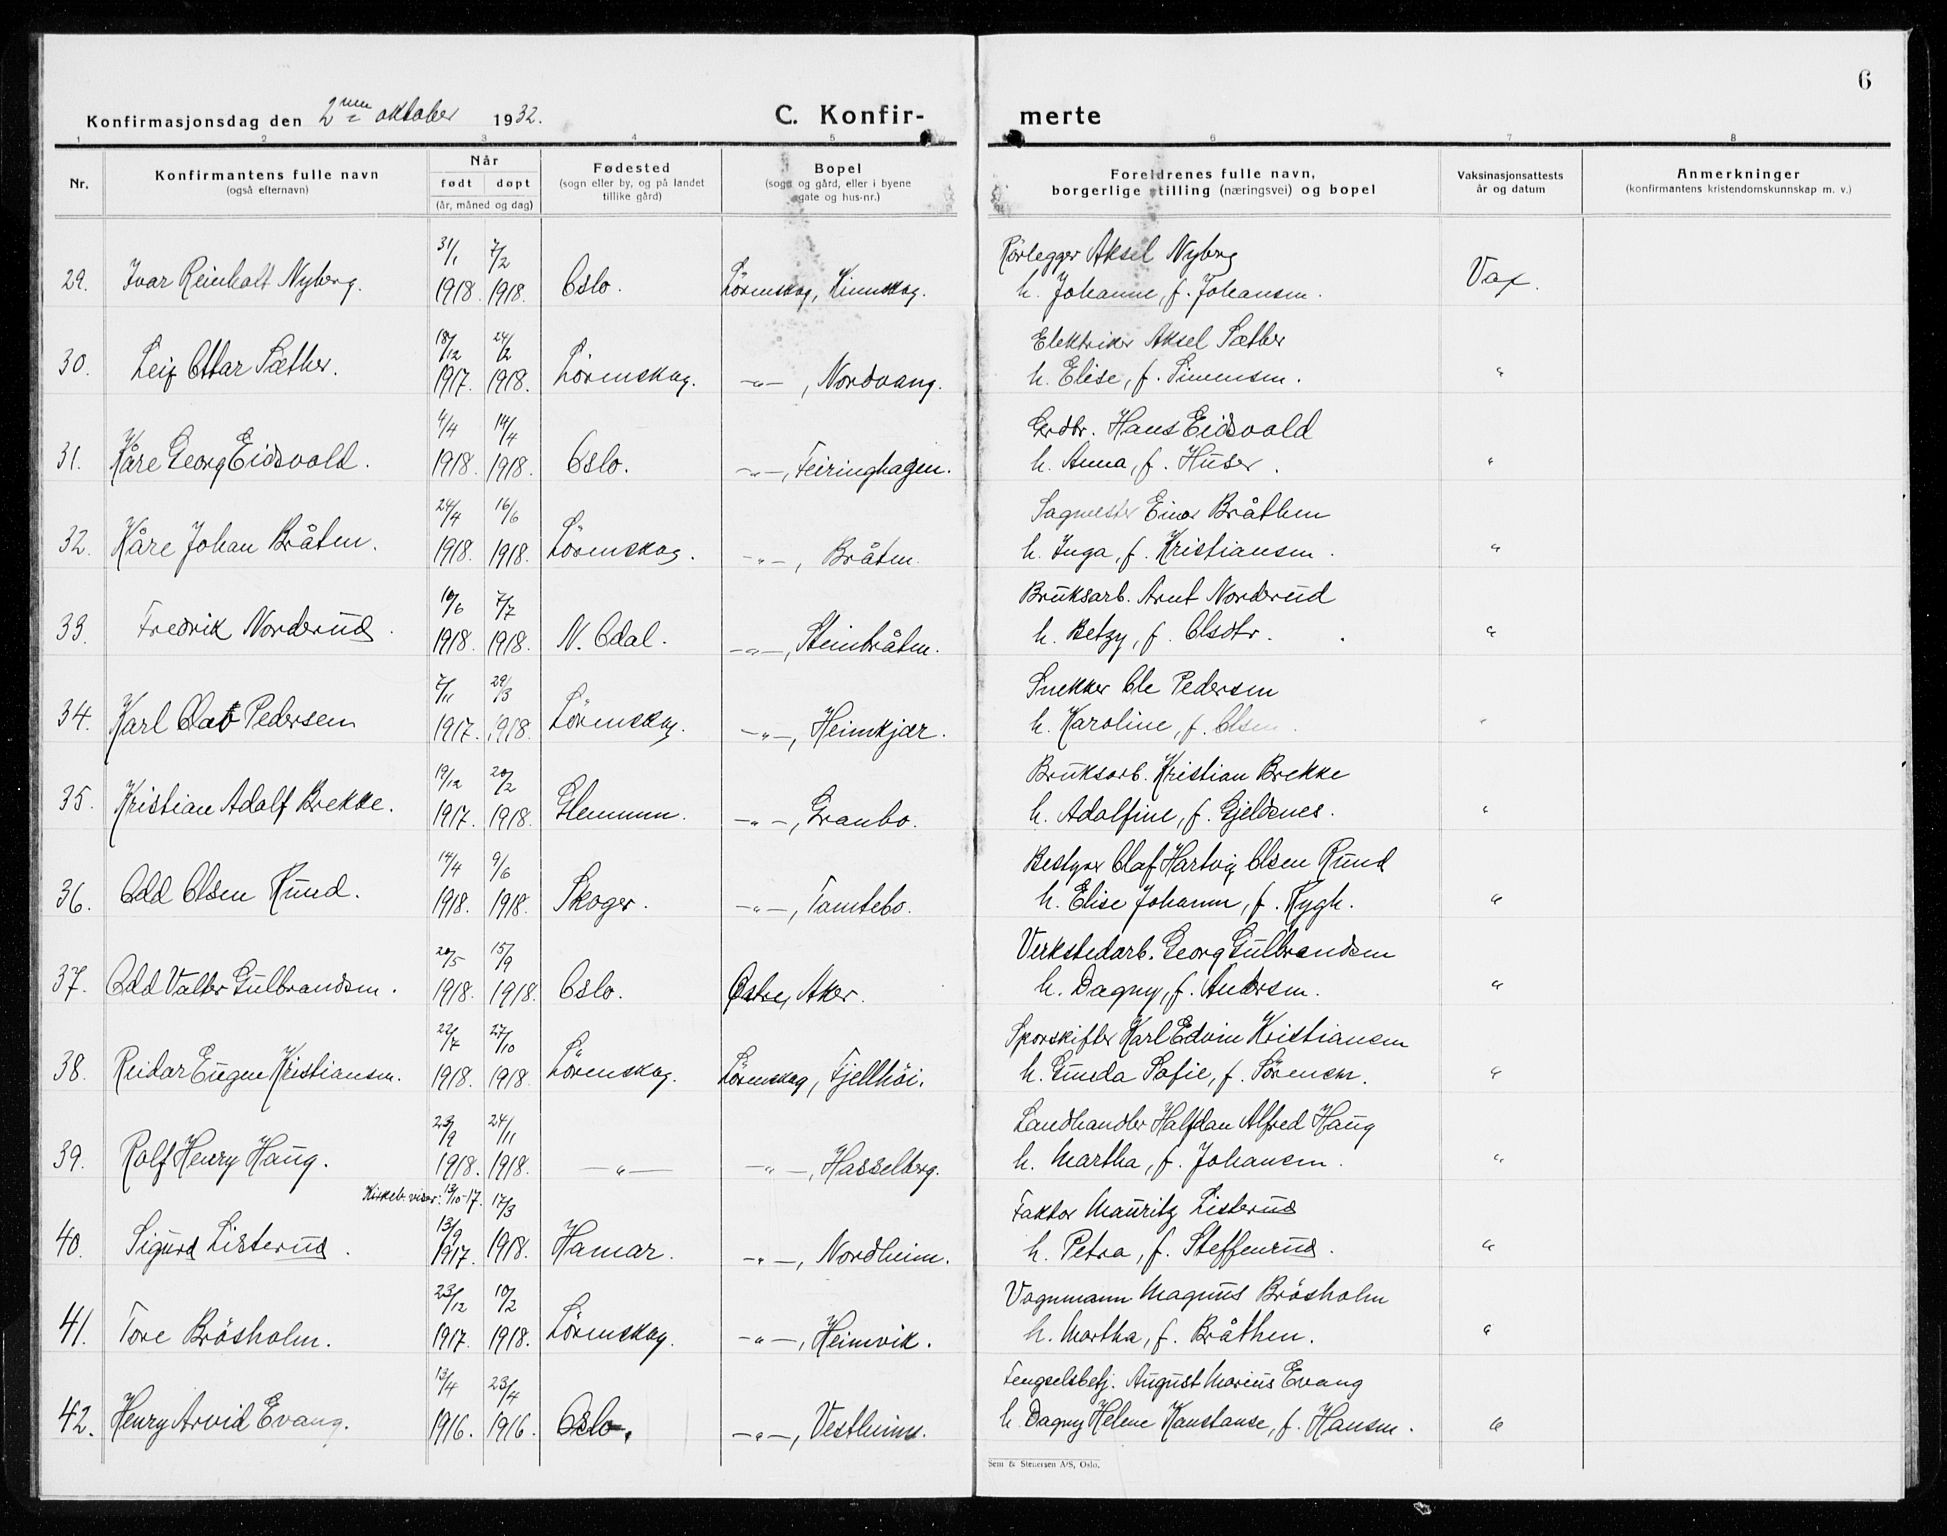 6
Konfirmasjonsdag den 2nen oktober 1932. C. Konfir- merte
1 2 3 4 5 6 7 8
Nr. Konfirmantens fulle navn (også efternavn) Når født døpt (år, måned og dag) Fødested (sogn eller by, og på landet tillike gård) Bopel (sogn og gård, eller i byene gate og hus-nr.) Foreldrenes fulle navn, borgerlige stilling (næringsvei) og bopel Vaksinasjonsattests år og datum Anmerkninger (konfirmantens kristendomskunnskap m. v.)
31/1 7/2 Rørlegger Aksel Nyberg
29. Ivar Reinholt Nyberg. 1918. 1918. Oslo. Lörenskog, Kinnskog. h. Johanne, f. Johansen. Vax.
18/12 24/2 Elektriker Aksel Sæther
30. Leif Ottar Sæther. 1917. 1918. Lörenskog. -"-, Nordvang. h. Elise, f. Simensen. "
4/4 14/4 Grdbr. Hans Eidsvold
31. Kåre Georg Eidsvold. 1918. 1918. Oslo. -"-, Feiringhagen. h. Anna, f. Huser. "
24/4 16/6 Sagmester Einar Bråthen
32. Kåre Johan Bråten. 1918. 1918. Lörenskog. -"-, Bråten. h. Inga, f. Kristiansen. "
10/6 7/7 Bruksarb. Arnt Norderud
33. Fredrik Norderud. 1918. 1918. N. Odal. -"-, Steinbråten. h. Betzy, f. Olsdtr. "
7/11 29/3 Snekker Ole Pedersen
34. Karl Olav Pedersen 1917. 1918. Lörenskog. -"-, Heimkjær. h. Karoline, f. Olsen. "
19/12 20/2 Bruksarb. Kristian Brekke
35. Kristian Adolf Brekke. 1917. 1918. Glemmen. -"-, Granbo. h. Adolfine, f. Gjeldnes. "
14/4 9/6 Bestyrer Olaf Hartvig Olsen Rund
36. Odd Olsen Rund. 1918. 1918. Skoger. -"-, Tamtebo. h. Elise Johanne, f. Rygh. "
20/5 15/9 Verkstedarb. Georg Gulbrandsen
37. Odd Valter Gulbrandsen. 1918. 1918. Oslo. Østre Aker. h. Dagny, f. Andersen. "
22/7 27/10 Sporskifter Karl Edvin Kristiansen
38. Reidar Eugen Kristiansen. 1918. 1918. Lörenskog. Lörenskog, Fjellhöi. h. Gunda Sofie, f. Sörensen. "
23/9 24/11 Landhandler Halfdan Alfred Haug
39. Rolf Henry Haug. 1918. 1918. -"- -"-, Hasselberg. h. Martha, f. Johansen. "
Kirkeb. viser: 13/10-17. 17/3 Faktor Mauritz Listerud
13/9
40. Sigurd Listerud. 1917. 1918. Hamar. -"-, Nordheim. h. Petra, f. Steffenrud. "
23/12 10/2 Vognmann Magnus Brösholm
41. Tore Brösholm. 1917. 1918. Lörenskog. -"-, Heimvik. h. Martha, f. Bråthen. "
13/4 23/4 Fengselsbetj. August Marius Evang
42. Henry Arvid Evang. 1916. 1916. Oslo. -"-, Vestheim. h. Dagny Helene Konstanse, f. Hansen. "
Sem & Stenersen A/S, Oslo.